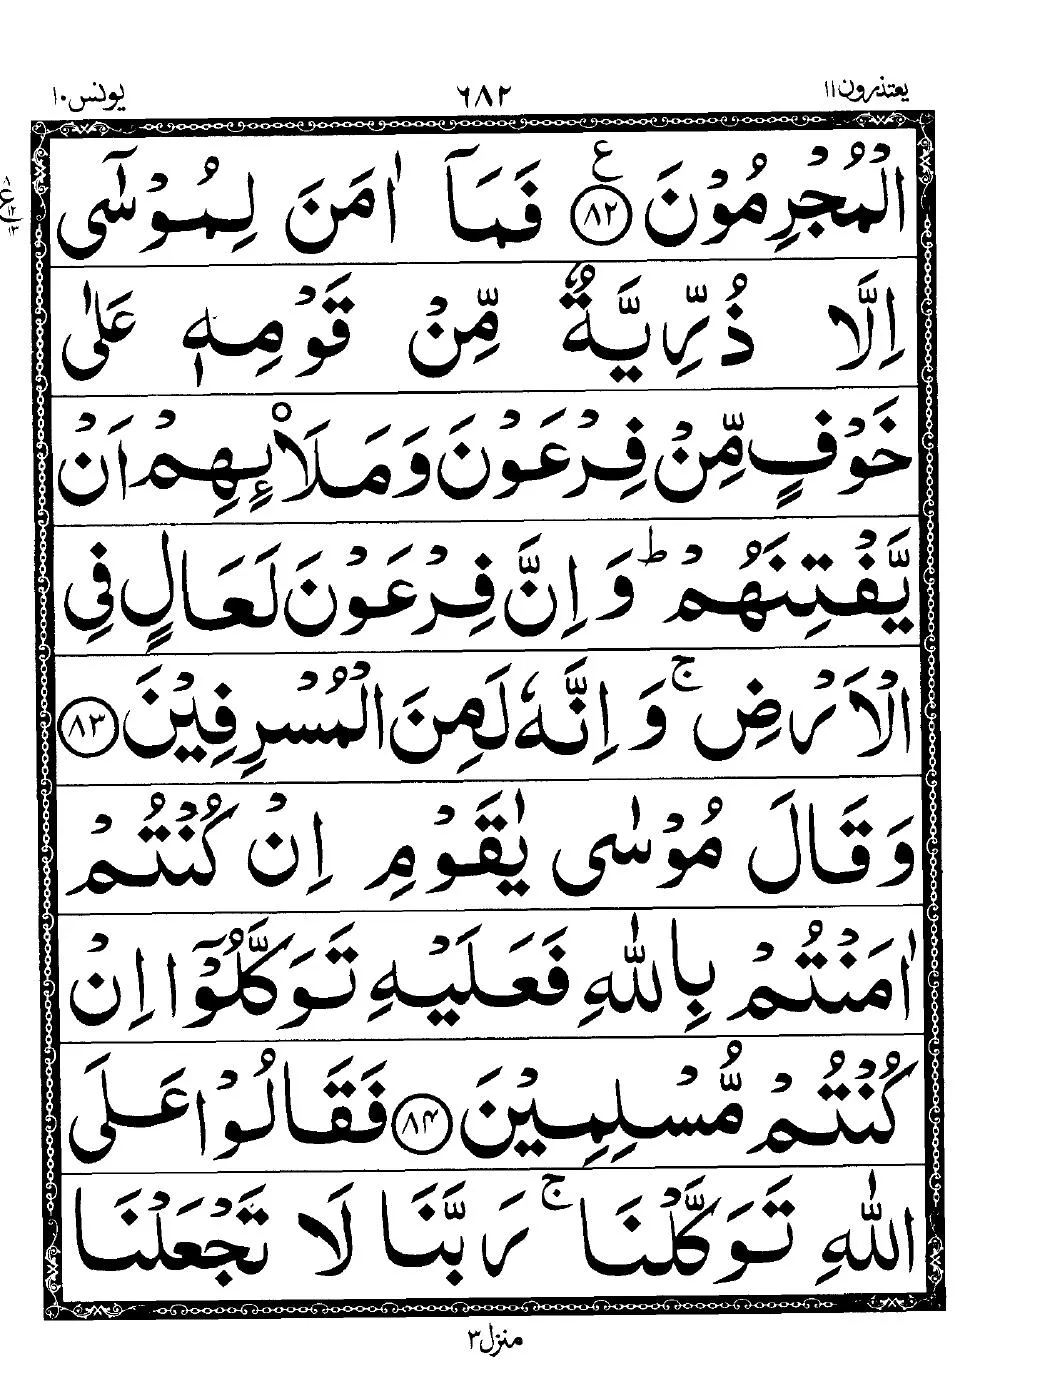 يعتذرون ١١
٦٨٢
يونس ١٠
الْمُجْرِمُوْنَ ﴿٨٢﴾ ع فَمَاۤ اٰمَنَ لِمُوْسٰۤى
اِلَّا ذُرِّيَّةٌ مِّنْ قَوْمِهٖ عَلٰى
خَوْفٍ مِّنْ فِرْعَوْنَ وَمَلَا۟ئِهِمْ اَنْ
يَّفْتِنَهُمْ ؕ وَاِنَّ فِرْعَوْنَ لَعَالٍ فِى
الْاَرْضِ ۚ وَاِنَّهٗ لَمِنَ الْمُسْرِفِيْنَ ﴿٨٣﴾
وَقَالَ مُوْسٰى يٰقَوْمِ اِنْ كُنْتُمْ
اٰمَنْتُمْ بِاللّٰهِ فَعَلَيْهِ تَوَكَّلُوْۤا اِنْ
كُنْتُمْ مُّسْلِمِيْنَ ﴿٨٤﴾ فَقَالُوْا عَلَى
اللّٰهِ تَوَكَّلْنَا ۚ رَبَّنَا لَا تَجْعَلْنَا
منزل ٣